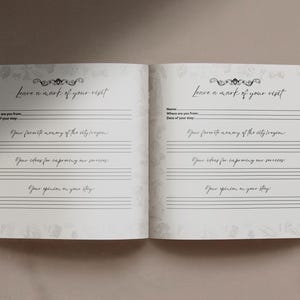 Leave a mark of your visit
are you from:
of your stay:
Your favorite memory of the city/region:
Your ideas for improving our services:
Your opinion on your stay:
Leave a mark of your visit
Name:
Where are you from:
Date of your stay:
Your favorite memory of the city/region:
Your ideas for improving our services:
Your opinion on your stay: